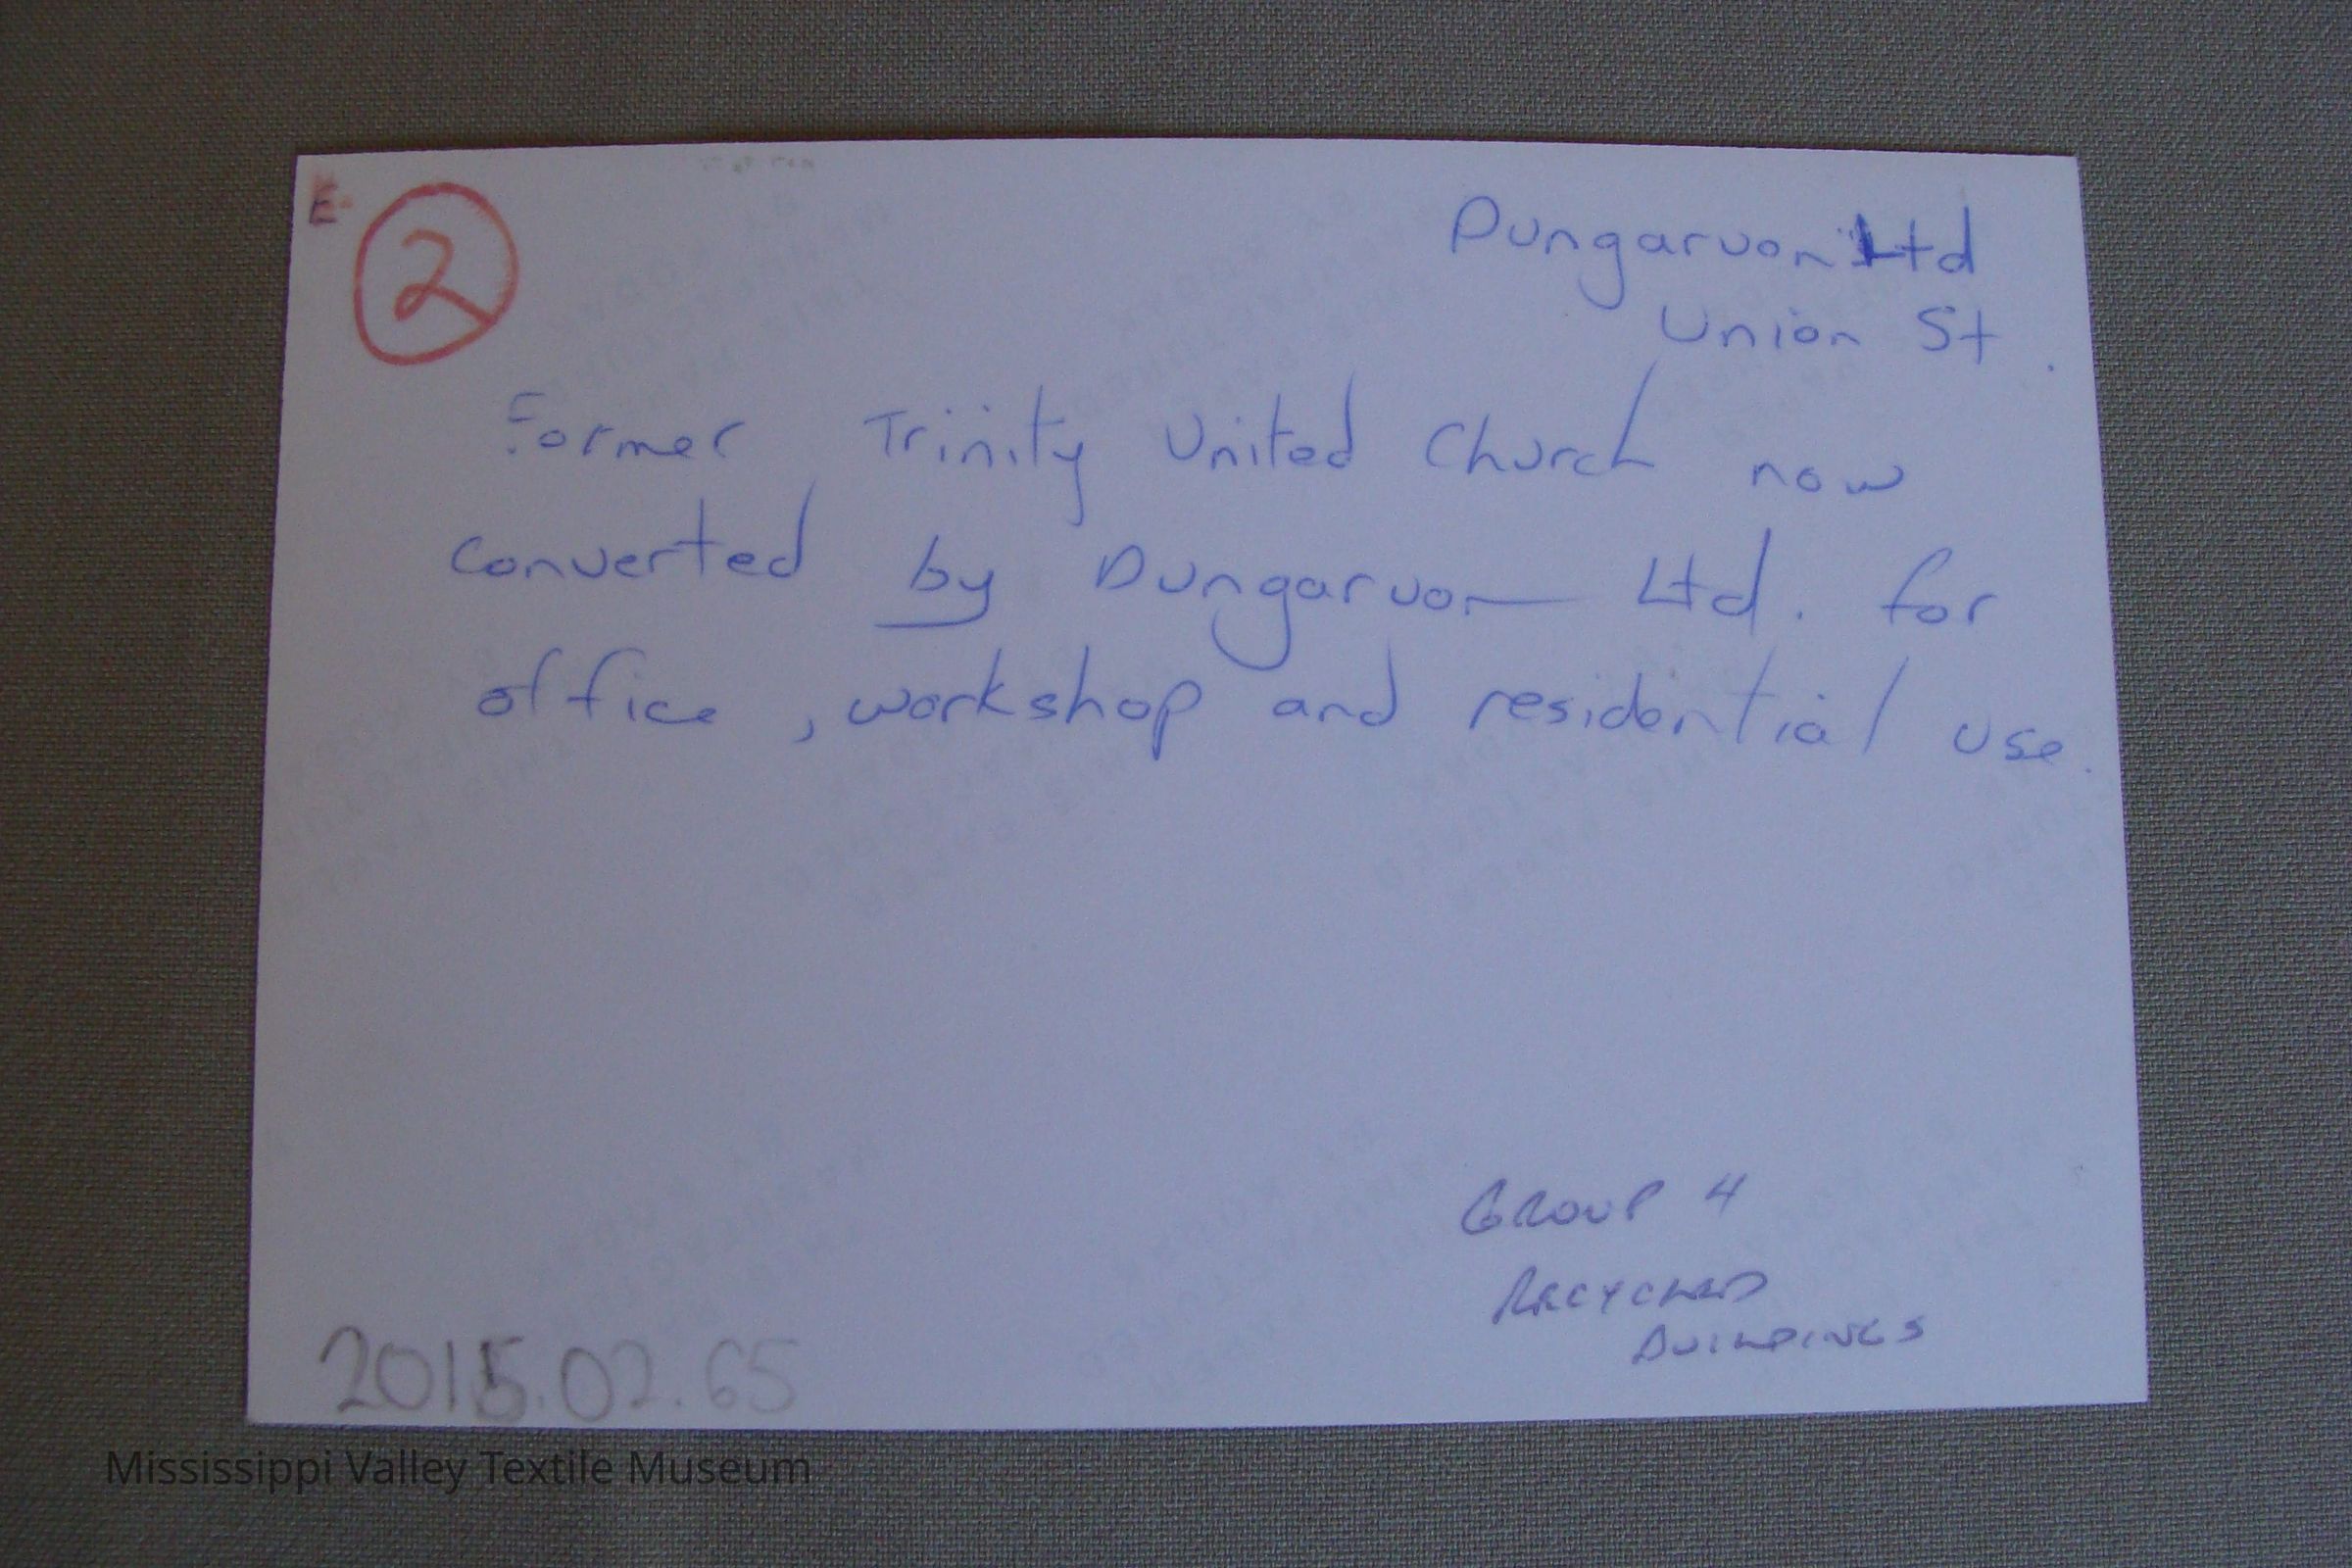 E
2
Dungarvon Ltd
Union St.
Former Trinity United Church now
converted by Dungarvon Ltd. for
office, workshop and residential use.
GROUP 4
RECYCLED
BUILDINGS
2015.02.65
Mississippi Valley Textile Museum